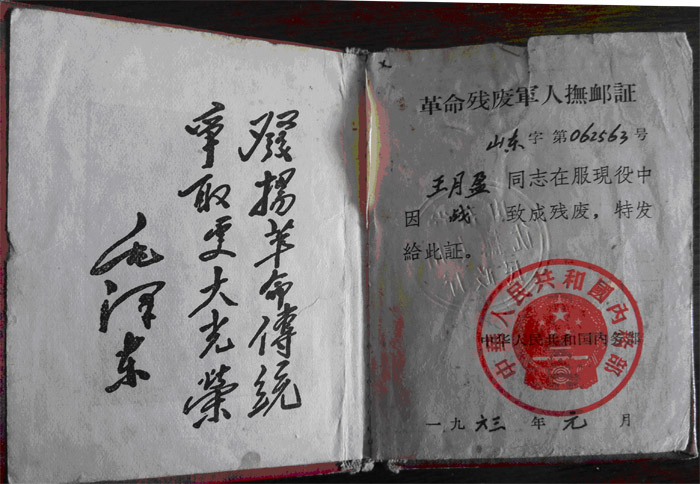 發揚革命傳統
爭取更大光榮
毛澤东
革命残废軍人撫邮証
山东字第062563号
王月盈 同志在服現役中
因 战 致成残废，特发
給此証。
中华人民共和国内务部
中華人民共和國內務部
一九六三年元月